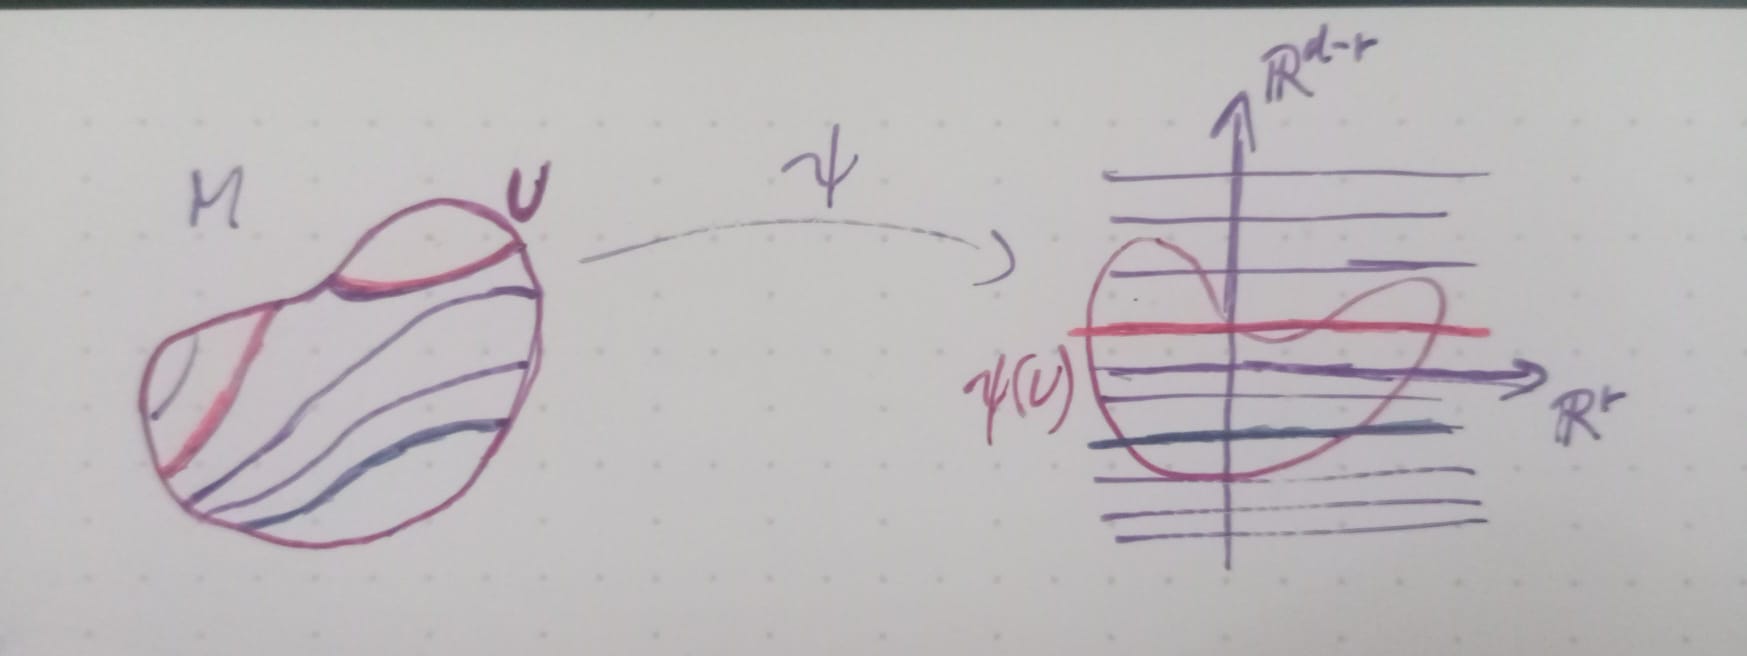 M
U
ψ
ℝ^{d-r}
ψ(U)
ℝ^r